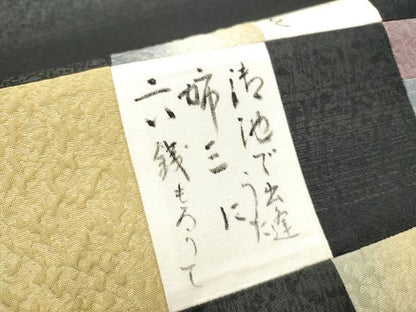 御池で出逢うた
姉三に
六銭もろうて